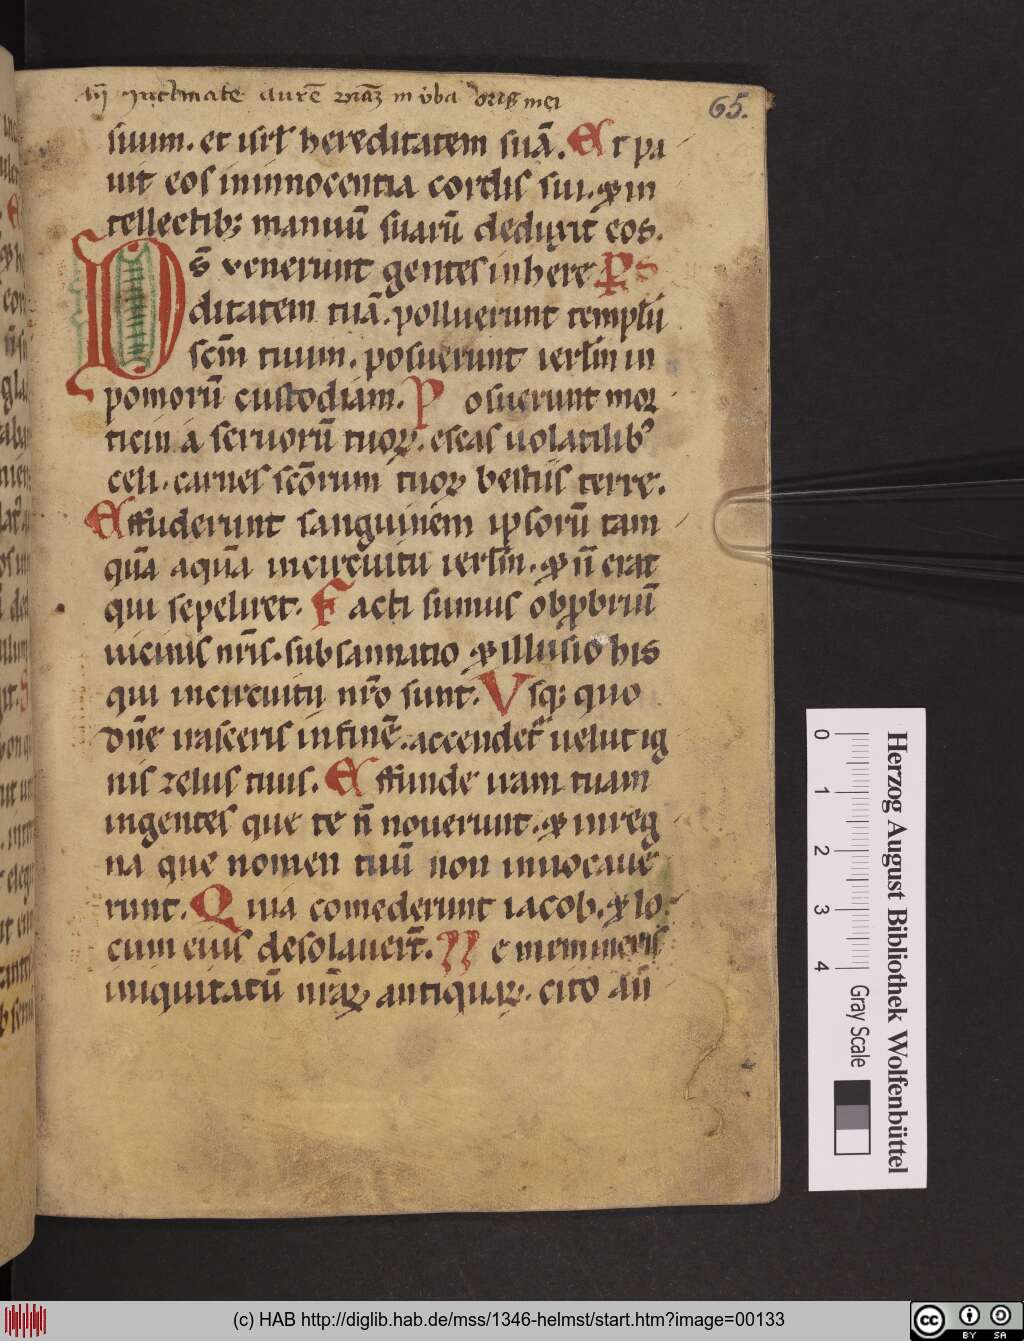 Añ Inclinate aurē vrāȝ in v̄ba oris mei
65.
suum. et isrl̄ hereditatem suā. Et pa
uit eos in innocentia cordis sui. ⁊ in
tellectibꝫ manuū suarū deduxit eos.
Ds̄ venerunt gentes in here PS
ditatem tuā. polluerunt templū
scm̄ tuum. posuerunt ierl̄m in
pomorū custodiam. Posuerunt mor
ticina seruorū tuoꝝ. escas uolatilibꝰ
celi. carnes scōrum tuoꝝ bestiis terre.
Effuderunt sanguinem ipsorū tam
quā aquā in circuitu ierl̄m. ⁊ ñ erat
qui sepeliret. Facti sumus obp̱briū
uicinis nr̄is. subsannatio ⁊ illusio his
qui in circuitu nr̄o sunt. Vsqꝫ quo
dn̄e irasceris in finē. accendet̄ uelut ig
nis zelus tuus. Effunde iram tuam
in gentes que te ñ nouerunt. ⁊ in reg
na que nomen tuū non inuocaue
runt. Quia comederunt iacob. ⁊ lo
cum eius desolauer̄t. Ne memineris
iniquitatū nr̄aꝝ antiquaꝝ. cito añ
Herzog August Bibliothek Wolfenbüttel
0 1 2 3 4 Gray Scale
(c) HAB http://diglib.hab.de/mss/1346-helmst/start.htm?image=00133
cc BY SA